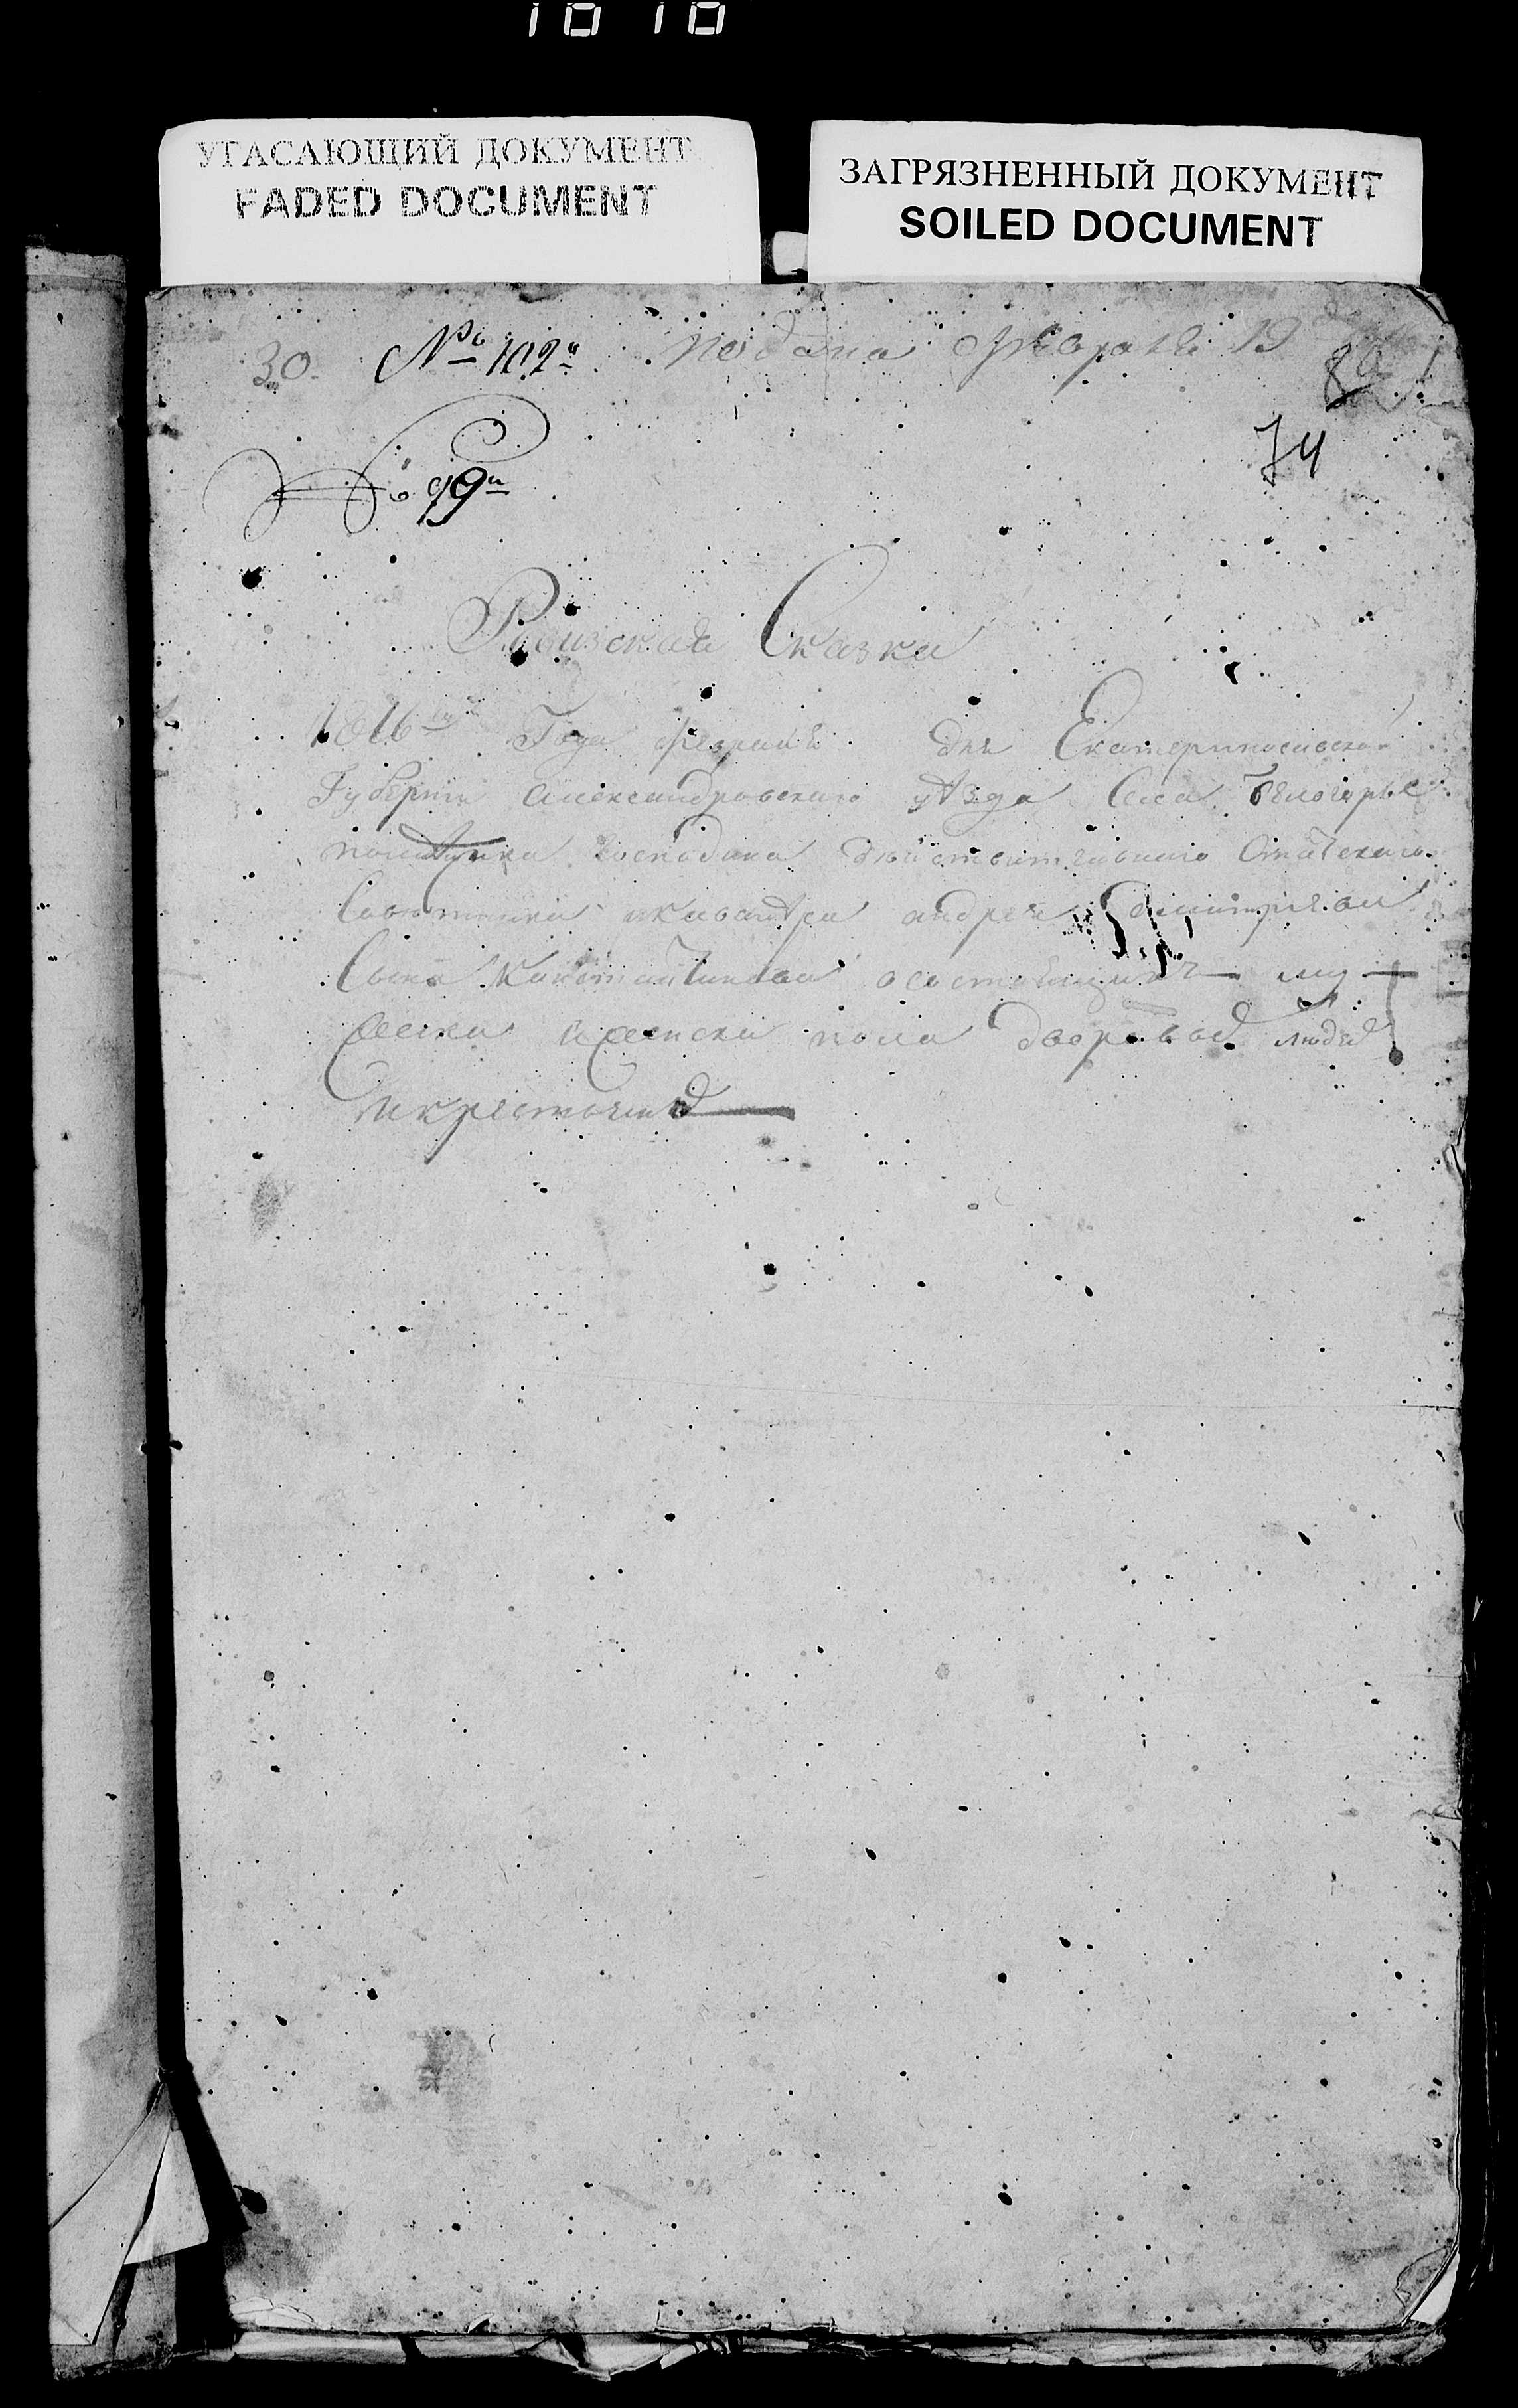 1816
УГАСАЮЩИЙ ДОКУМЕНТ
FADED DOCUMENT
ЗАГРЯЗНЕННЫЙ ДОКУМЕНТ
SOILED DOCUMENT
30. № 102й подана февраля 19
80
74
99й
Ревизская Сказка
1816го Года февраля дня Екатеринославской
Губернии александровскаго уѣзда Села Белогорье
помещика господина действительнаго Статскаго
Советника икавалера андрея дмитриева
Сына Константинова осостоящихъ муже
ска иженска пола дворовыхъ людей
икрестьянъ